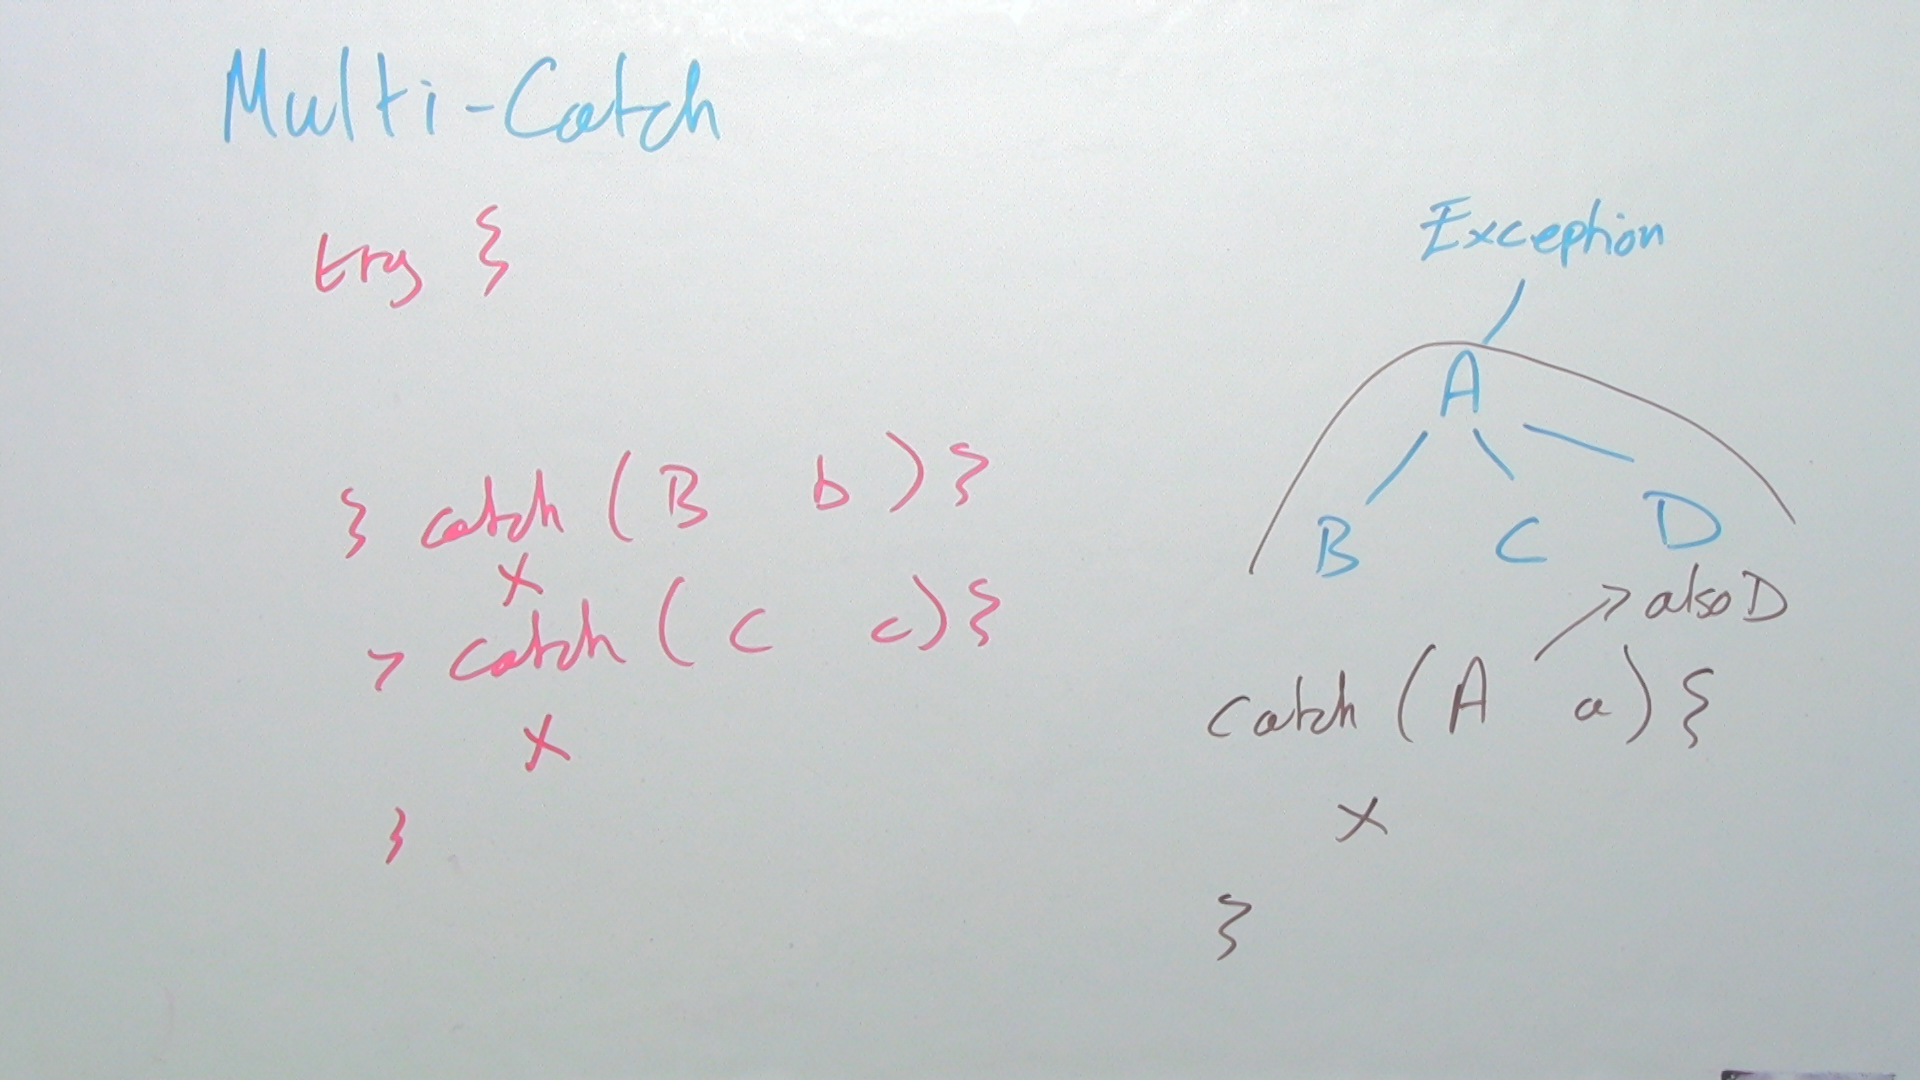 Multi-Catch
try {
} catch (B b) {
x
} catch (C c) {
x
}
Exception
A
B C D
also D
catch (A a) {
x
}